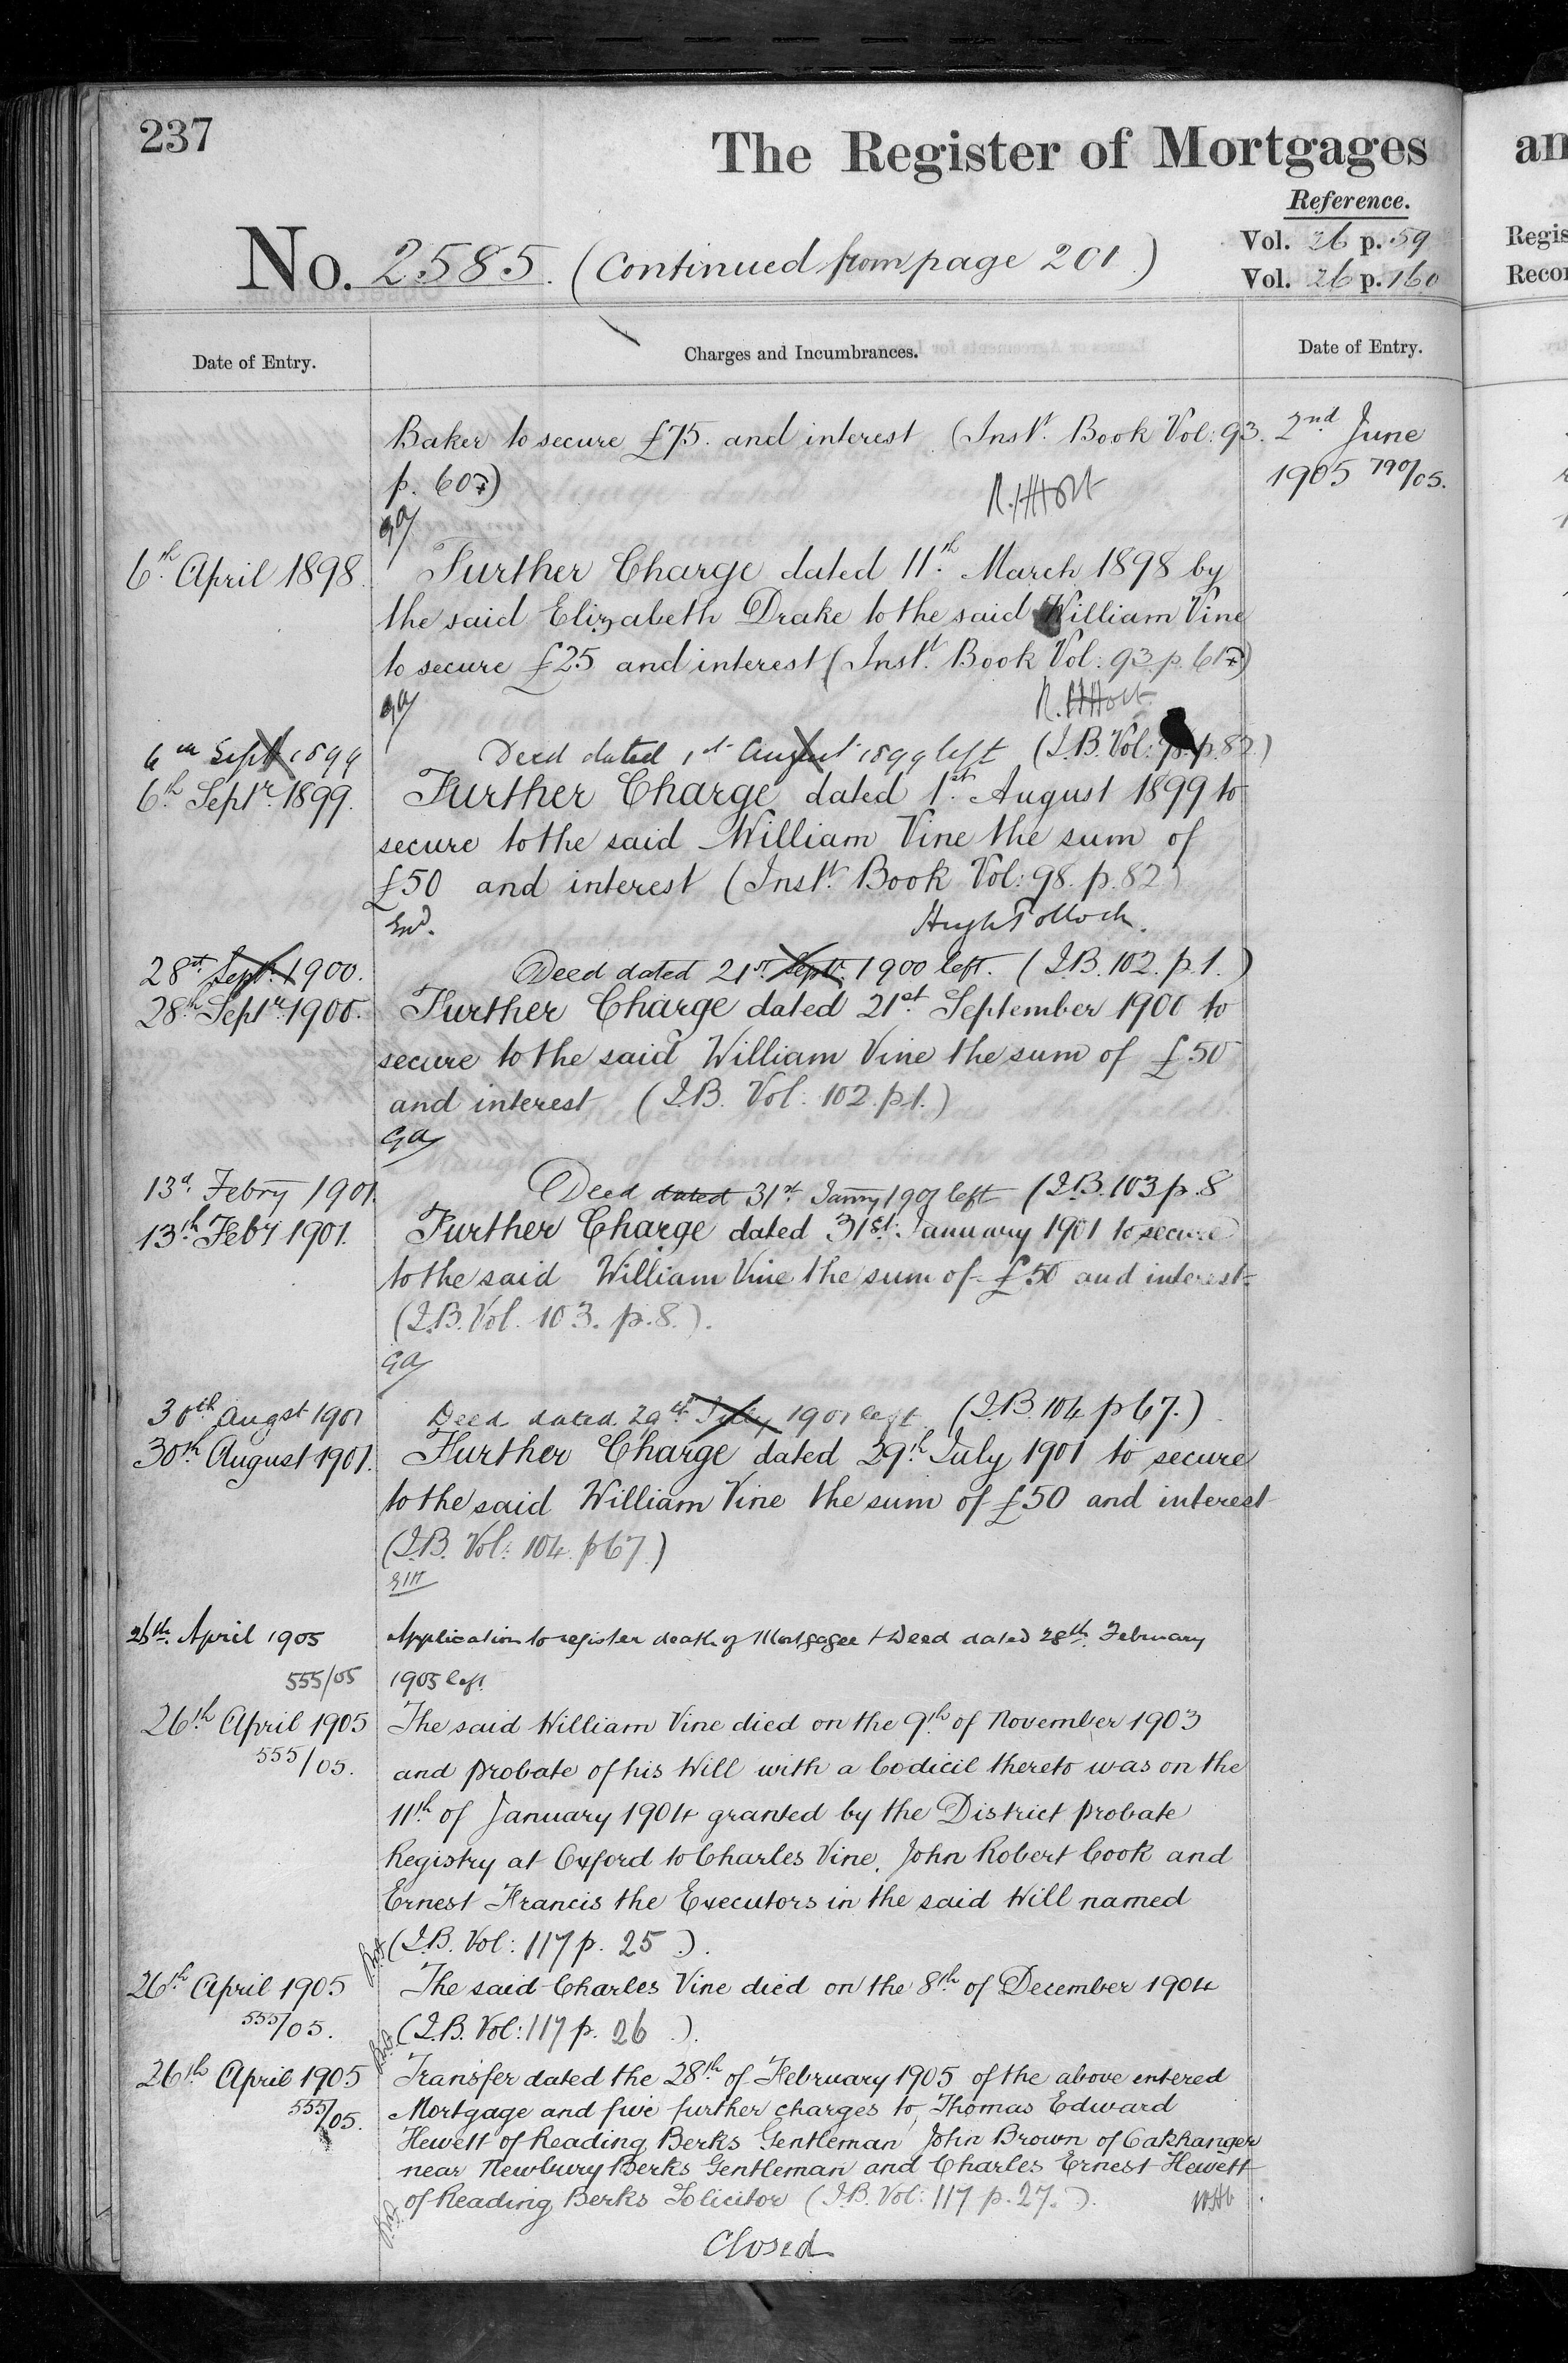 237
The Register of Mortgages
an
Reference.
Vol. 26 p. 59
Regis
No. 2585. (Continued from page 201)
Vol. 26 p. 160
Recor
Date of Entry.
Charges and Incumbrances.
Date of Entry.
Baker to secure £75. and interest (Inst. Book Vol: 93.
2nd June
p. 607)
1905 790/05.
6th April 1898.
Further Charge dated 11th March 1898 by
the said Elizabeth Drake to the said William Vine
to secure £25 and interest (Inst. Book Vol: 93. p. 617)
6th Sept 1899
Deed dated 1st August 1899 left (I.B. Vol: 98. p. 82.)
6th Septr. 1899.
Further Charge dated 1st August 1899 to
secure to the said William Vine the sum of
£50 and interest (Inst. Book Vol: 98. p. 82)
Hugh Pollock.
28st Sept. 1900.
Deed dated 21st Septr. 1900 left. (I.B. 102. p. 1.)
28th Septr. 1900.
Further Charge dated 21st September 1900 to
secure to the said William Vine the sum of £50
and interest (I.B. Vol: 102. p. 1.)
GA
13th Febry 1901.
Deed dated 31st Janry 1901 left (I.B. 103 p. 8
13th Feby 1901.
Further Charge dated 31st January 1901 to secure
to the said William Vine the sum of £50 and interest
(I.B. Vol. 103. p. 8.).
GA
30th Augst 1901
Deed dated 29th July 1901 left (I.B. 104 p 67.)
30th August 1901.
Further Charge dated 29th July 1901 to secure
to the said William Vine the sum of £50 and interest
(I.B. Vol: 104. p 67.)
26th April 1905
Application to register death of Mortgagee + Deed dated 28th February
555/05
1905 left.
26th April 1905
The said William Vine died on the 9th of November 1903
555/05.
and probate of his Will with a Codicil thereto was on the
11th of January 1904 granted by the District Probate
Registry at Oxford to Charles Vine, John Robert Cook and
Ernest Francis the Executors in the said Will named
(I.B. Vol: 117 p. 25 ).
26th April 1905
The said Charles Vine died on the 8th of December 1904
555/05.
(I.B. Vol: 117 p. 26 ).
26th April 1905
Transfer dated the 28th of February 1905 of the above entered
555/05.
Mortgage and five further charges to Thomas Edward
Hewett of Reading Berks Gentleman John Brown of Oakhanger
near Newbury Berks Gentleman and Charles Ernest Hewett
of Reading Berks Solicitor (I.B. Vol: 117 p. 27. ).
Closed